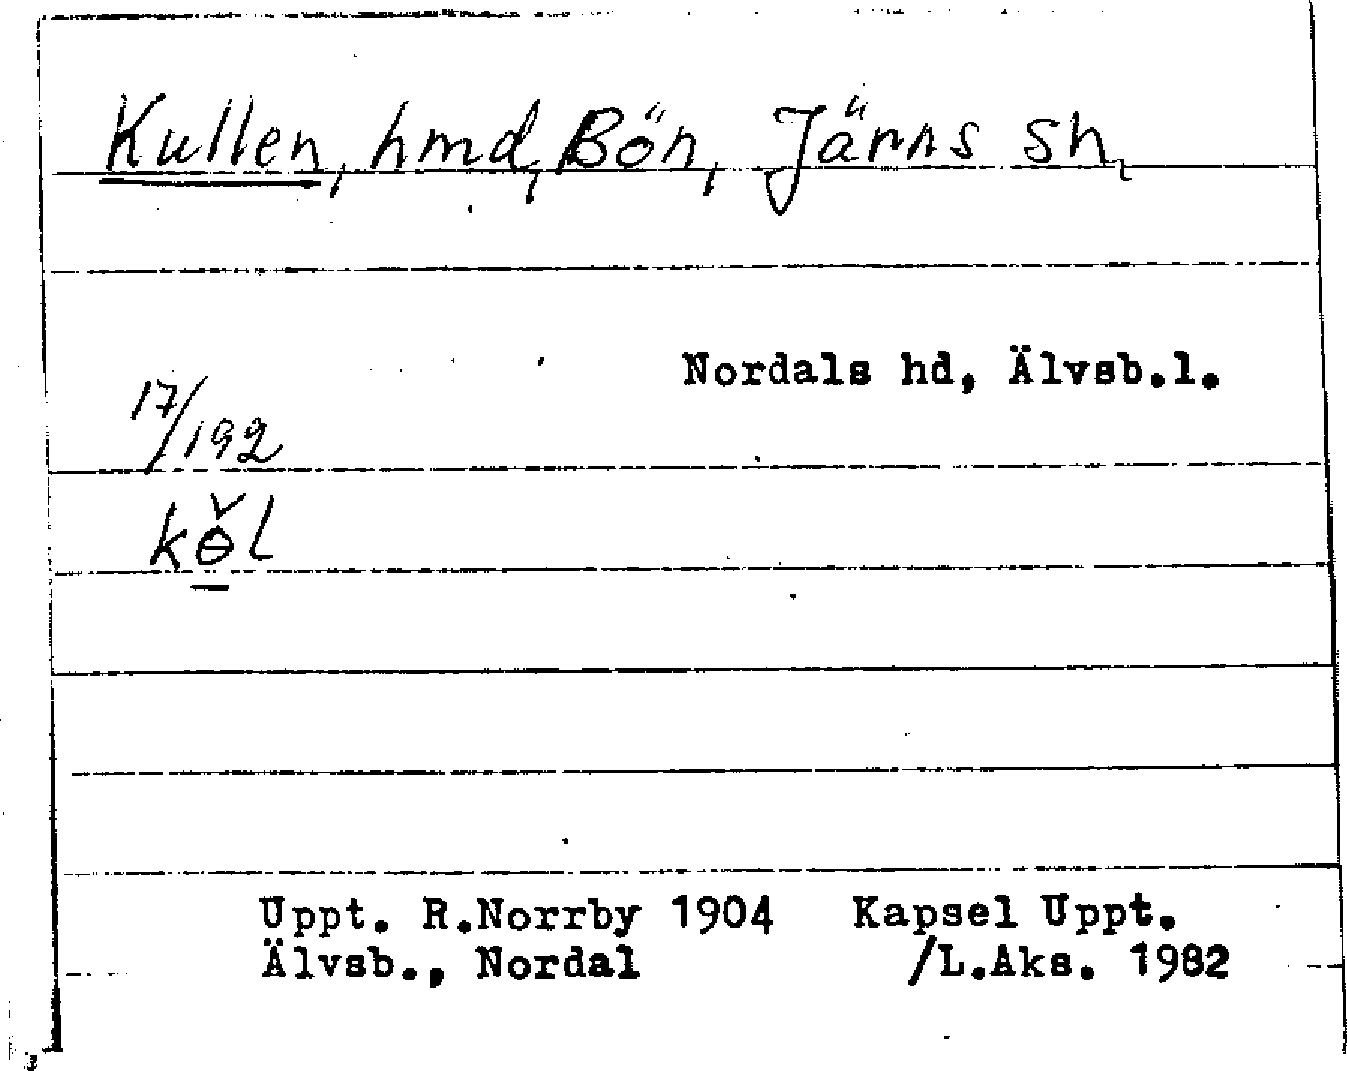 Kullen, hmd, Bön, Järns sn,
Nordals hd, Älvsb.l.
17/192
kɵ̲̌l
Uppt. R.Norrby 1904 Kapsel Uppt.
Älvsb., Nordal /L.Aks. 1982